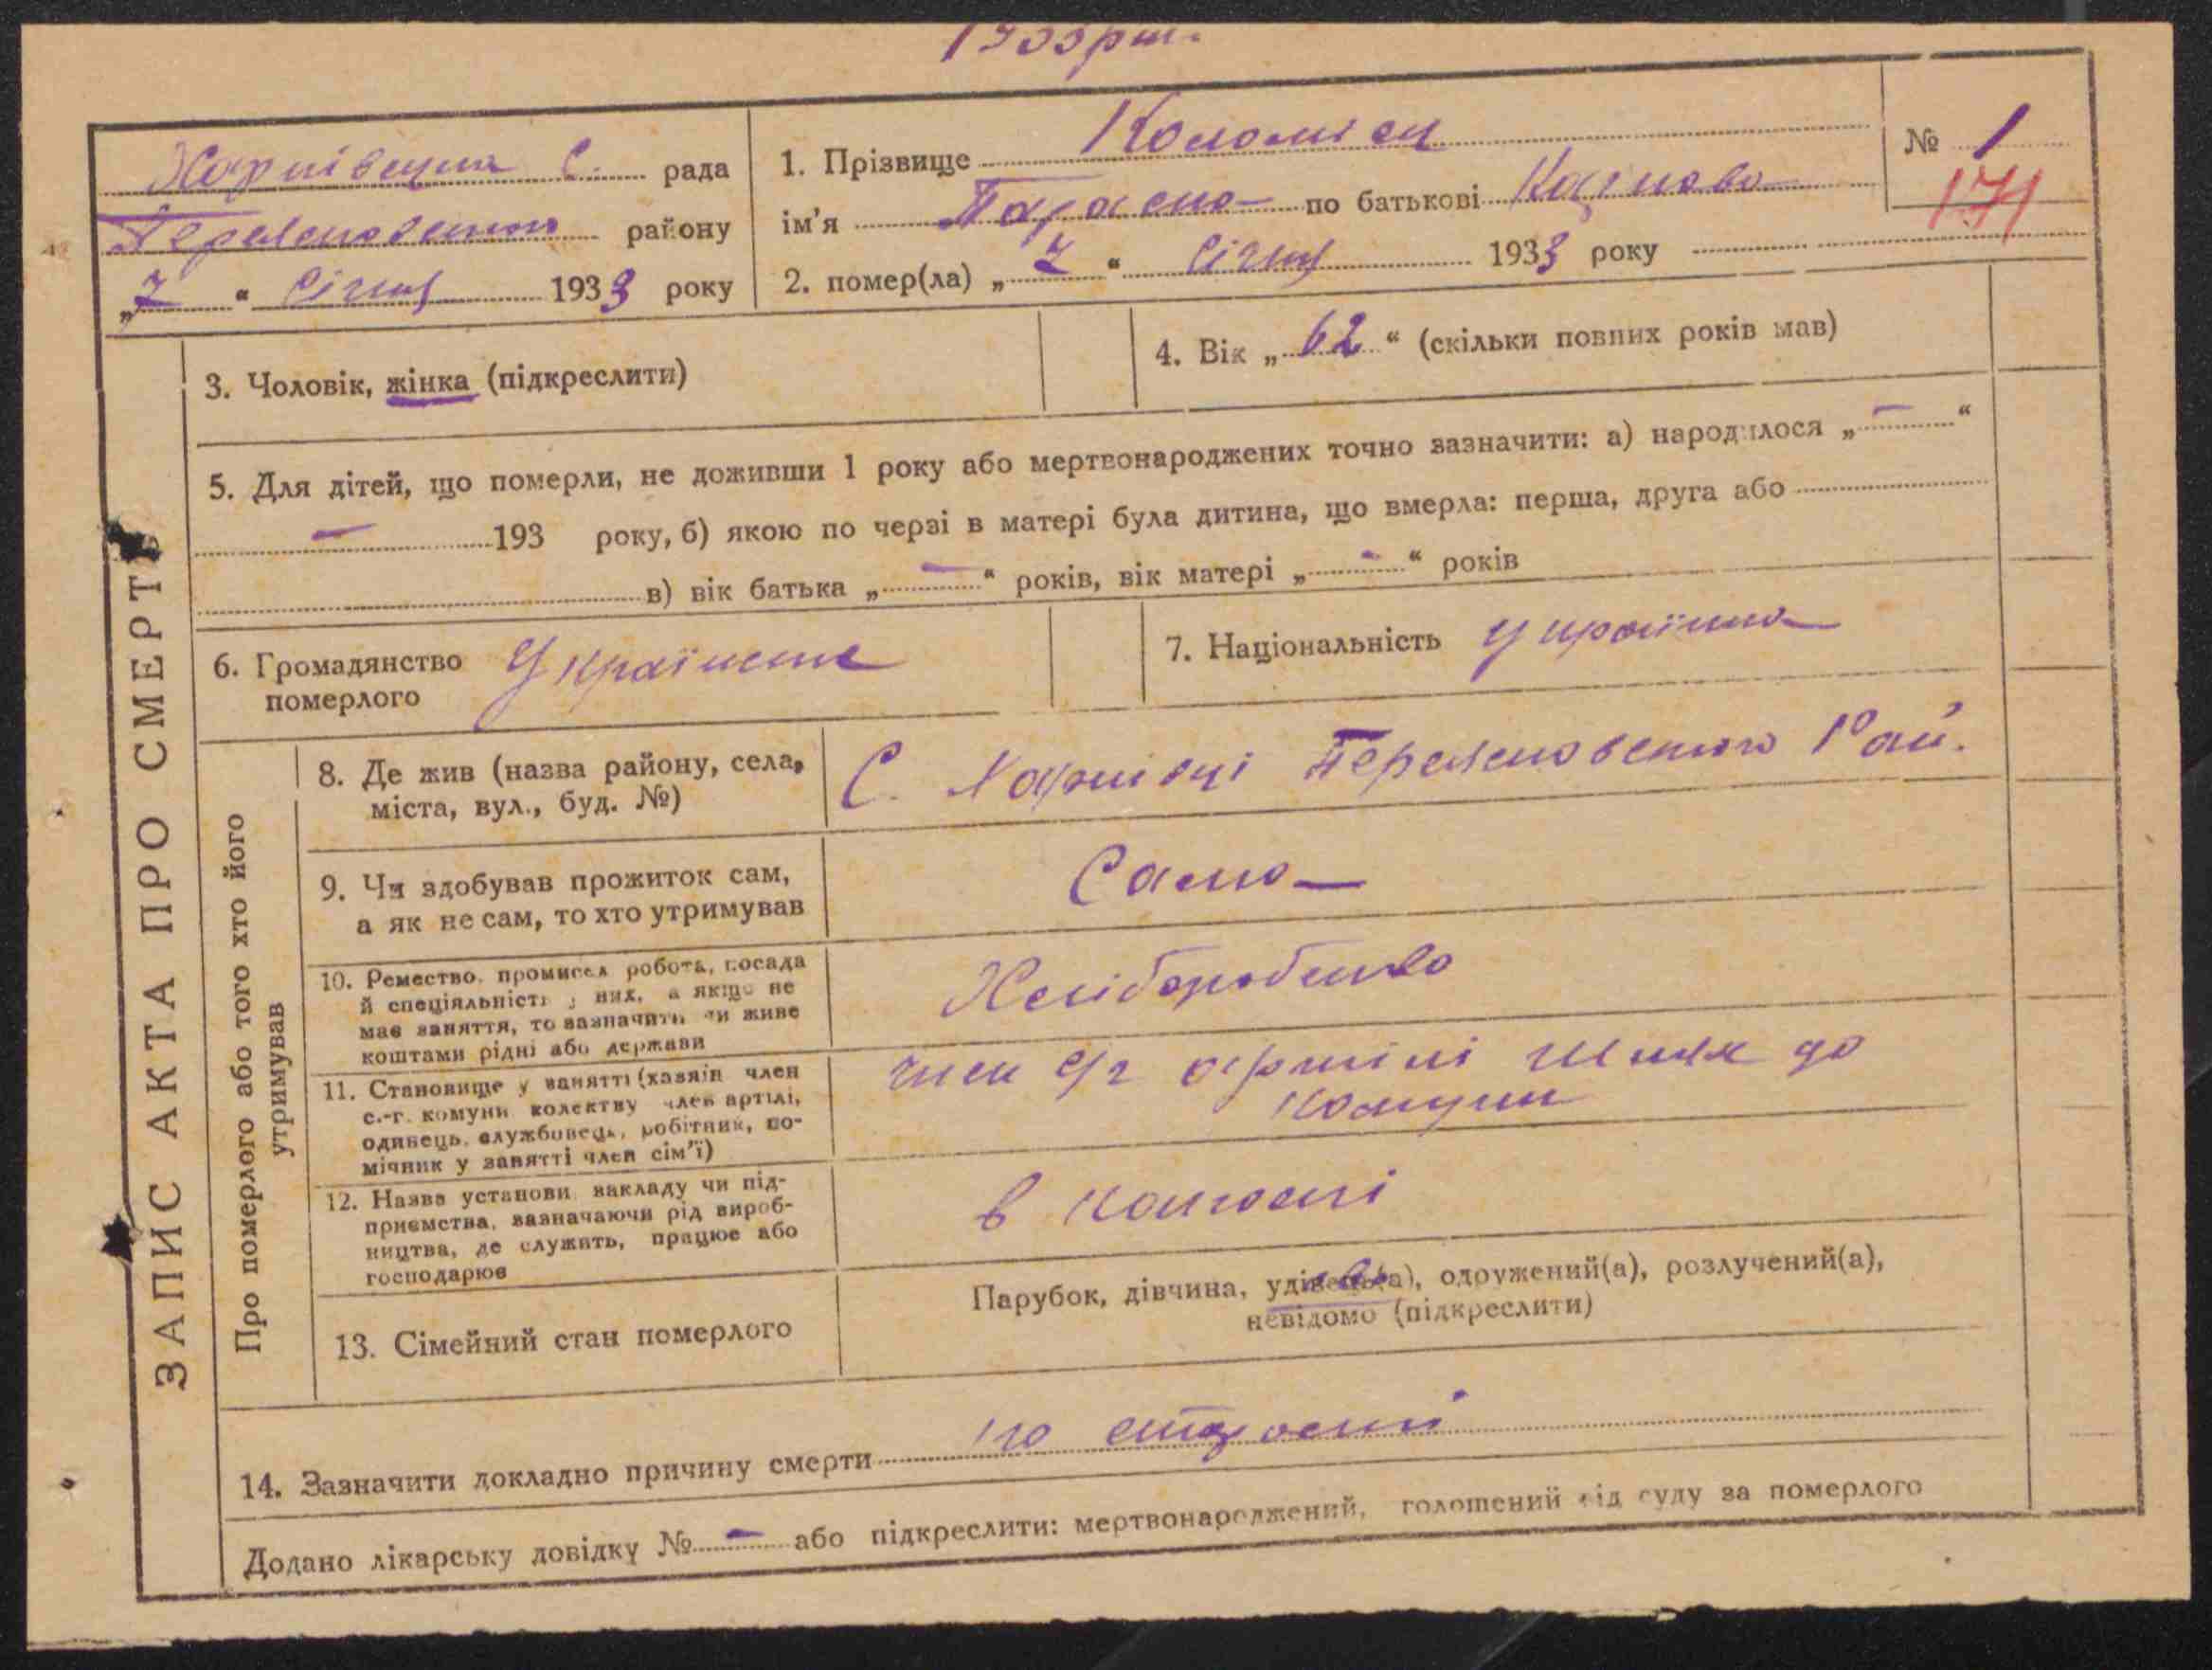 1933 рік.
Харківецька С. рада
Переяславського району
„ 7 “ Січня 1933 року
1. Прізвище Коломієц
№ 1
171
ім’я Параска по батькові
2. помер(ла) „ 7 “ Січня 1933 року
ЗАПИС АКТА ПРО СМЕРТЬ
3. Чоловік, жінка (підкреслити)
4. Вік „ 62 “ (скільки повних років мав)
5. Для дітей, що померли, не доживши 1 року або мертвонароджених точно зазначити: а) народилося „ — “
— 193 року, б) якою по черзі в матері була дитина, що вмерла: перша, друга або
в) вік батька „ — “ років, вік матері „ - “ років
6. Громадянство померлого Українське
7. Національність Українка
Про померлого або того хто його утримував
8. Де жив (назва району, села,
міста, вул., буд. №)
С. Харківці Переяславського Рай.
9. Чи здобував прожиток сам,
а як не сам, то хто утримував
Сама
10. Ремество, промисел робота, посада
й спеціяльність у них, а якщо не
має заняття, то зазначити чи живе
коштами рідні або держави
Хліборобство
11. Становище у занятті (хазяїн член
с.-г. комуни колективу член артілі,
одинець, службовець, робітник, по-
мічник у занятті член сім’ї)
член с/г артілі Шлях до
Комуни
12. Назва установи закладу чи під-
приємства, зазначаючи рід вироб-
ництва, де служить, працює або
господарює
в колгоспі
13. Сімейний стан померлого
Парубок, дівчина, удівець(а), одружений(а), розлучений(а),
невідомо (підкреслити)
14. Зазначити докладно причину смерти по старості
Додано лікарську довідку № - або підкреслити: мертвонароджений, голошений від суду за померлого